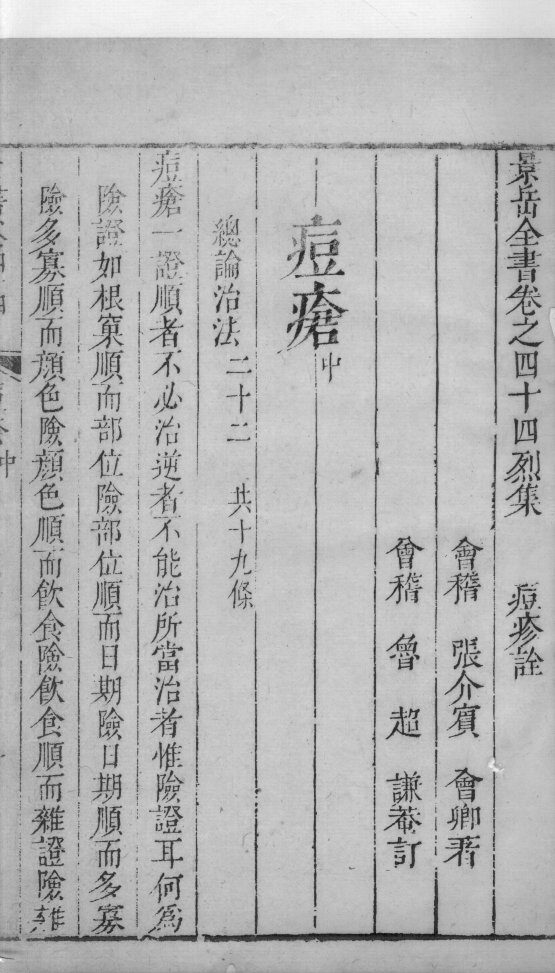 景岳全書卷之四十四烈集 痘疹詮
會稽 張介賓 會卿著
會稽 魯超 謙菴訂
痘瘡中
總論治法二十二 共十九條
痘瘡一證順者不必治逆者不能治所當治者惟險證耳何爲
險證如根窠順而部位險部位順而日期險日期順而多寡
險多寡順而顔色險顔色順而飲食險飲食順而雜證險雜